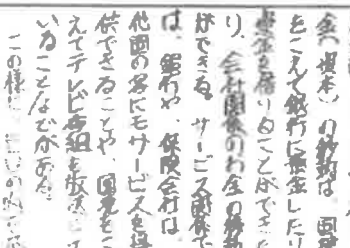 金(資本)の移動は、国境
をこえて銀行に預金したり
資金を借りることができ
り、会社関係のお金の移動
ができる。サービス関係で
は、銀行や、保険会社は
他国の客にもサービスを提
供できることや、国境をこ
えてテレビ番組を放送して
いることなどがある。
この様に